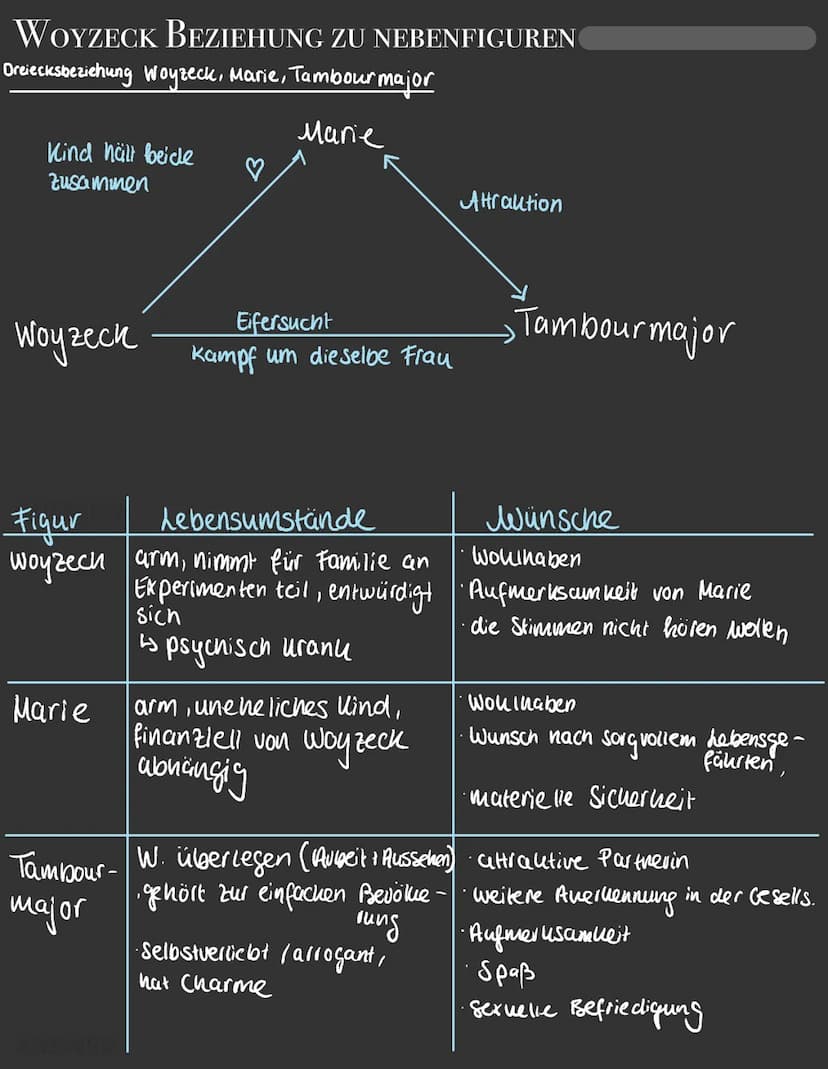 WOYZECK BEZIEHUNG ZU NEBENFIGUREN
Dreiecksbeziehung Woyzeck, Marie, Tambourmajor
Marie
Kind hält beide
zusammen
Attraktion
Woyzeck
Eifersucht
Kampf um dieselbe Frau
Tambourmajor
Figur
Lebensumstände
Wünsche
Woyzeck
arm, nimmt für Familie an
Experimenten teil, entwürdigt
sich
↳ psychisch krank
· Wohlhaben
· Aufmerksamkeit von Marie
· die Stimmen nicht hören wollen
Marie
arm, uneheliches Kind,
finanziell von Woyzeck
abhängig
· Wohlhaben
· Wunsch nach sorgvollem Lebensge-
fährten,
· materielle Sicherheit
Tambour-
major
W. überlegen (Arbeit + Aussehen)
· gehört zur einfachen Bevölke-
rung
· Selbstverliebt / arrogant,
hat Charme
· attraktive Partnerin
· weitere Anerkennung in der Gesells.
· Aufmerksamkeit
· Spaß
· sexuelle Befriedigung